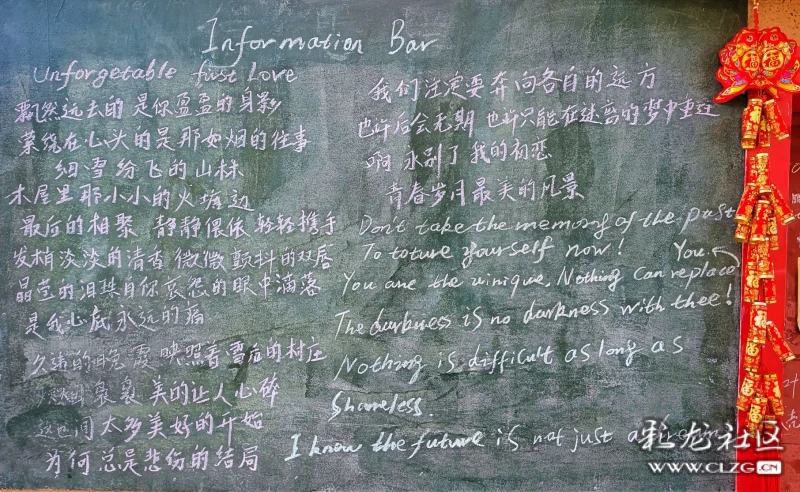 Information Bar
Unforgetable first Love
飘然远去的 是你盈盈的身影
萦绕在心头的是那如烟的往事
细雪纷飞的山林
木屋里那小小的火塘边
最后的相聚 静静偎依 轻轻携手
发梢淡淡的清香 微微颤抖的双唇
晶莹的泪珠自你哀怨的眼中滴落
是我心底永远的痛
久违的晚霞 映照着雪后的村庄
袅袅 美的让人心碎
这世间 太多美好的开始
为何总是悲伤的结局
我们注定要奔向各自的远方
也许后会无期 也许只能在迷离的梦中重过
啊 永别了 我的初恋
青春岁月最美的风景
Don't take the memory of the past
To toture yourself now!
You are the uinique. Nothing Can replace You.
The darkness is no darkness with thee!
Nothing is difficult as long as
Shameless.
I know the future is not just a
福
彩龙社区
WWW.CLZG.CN